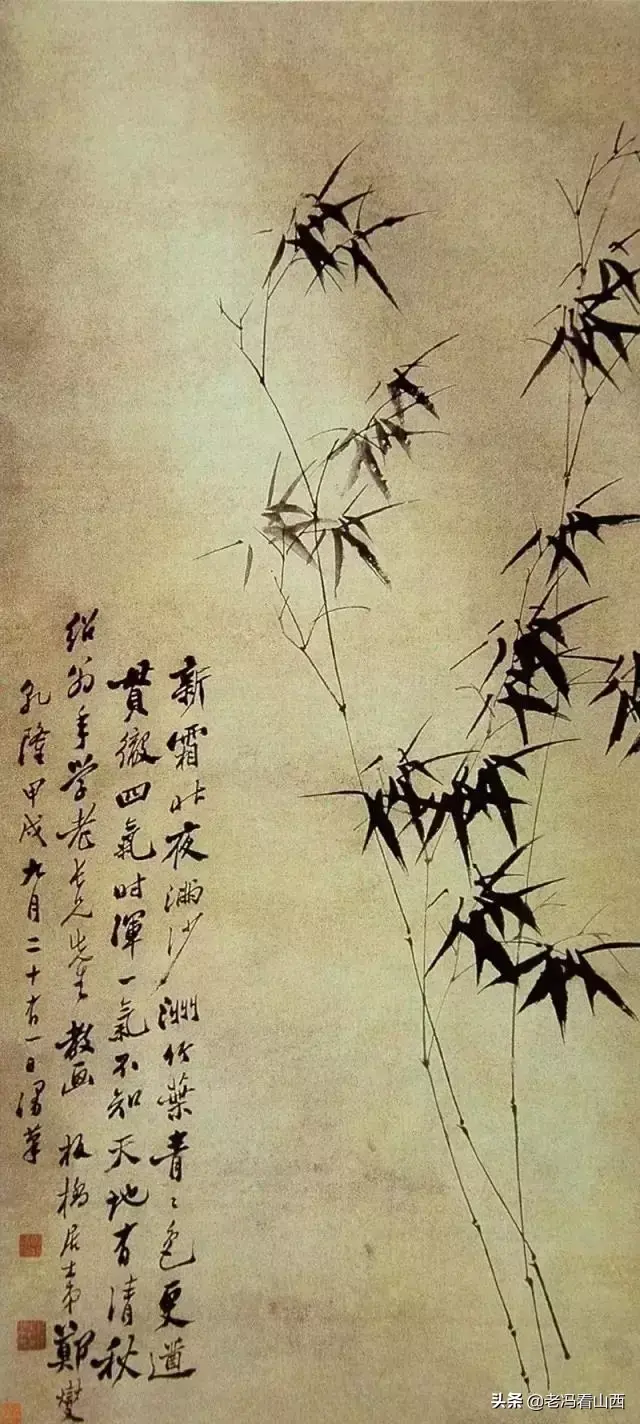 新霜昨夜滿沙洲竹葉青〻色更遒
貫徹四氣时渾一氣不知天地有清秋
绍翁年学老长兄先生 教画 板橋居士弟鄭燮
乹隆甲戌九月二十有一日
头条 @老冯看山西